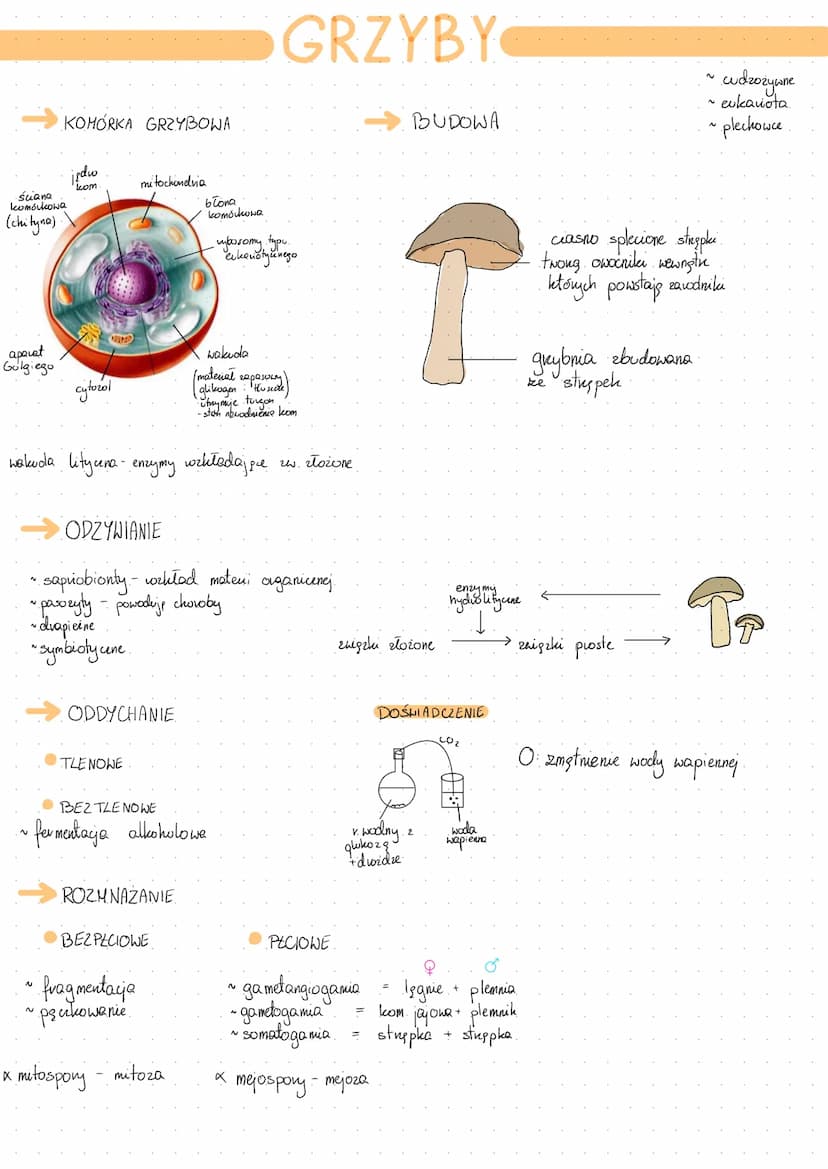 GRZYBY
~ cudzożywne
~ eukariota
~ plechowce
→ KOMÓRKA GRZYBOWA
→ BUDOWA
jądro
kom.
mitochondria
ściana
komórkowa
(chityna)
błona
komórkowa
rybosomy typu
eukariotycznego
aparat
Golgiego
cytozol
wakuola
(materiał zapasowy
glikogen i tłuszcze)
utrzymuje turgor
- stan nawodnienia kom
ciasno splecione strzępki
tworzą owocniki wewnątrz
których powstają zarodniki
grzybnia zbudowana
ze strzępek
wakuola lityczna - enzymy rozkładające zw. złożone
→ ODŻYWIANIE
~ saprobionty - rozkład materii organicznej
~ pasożyty - powodują choroby
~ drapieżne
~ symbiotyczne
enzymy
hydrolityczne
związki złożone → związki proste →
→ ODDYCHANIE
TLENOWE
BEZTLENOWE
~ fermentacja alkoholowa
DOŚWIADCZENIE
CO₂
r. wodny z
glukozą
+ drożdże
woda
wapienna
O: zmętnienie wody wapiennej
→ ROZMNAŻANIE
BEZPŁCIOWE
~ fragmentacja
~ pączkowanie
PŁCIOWE
♀ ♂
~ gametangiogamia = lęgnie + plemnia
~ gametogamia = kom. jajowa + plemnik
~ somatogamia = strzępka + strzępka
∝ mitospory - mitoza
∝ mejospory - mejoza